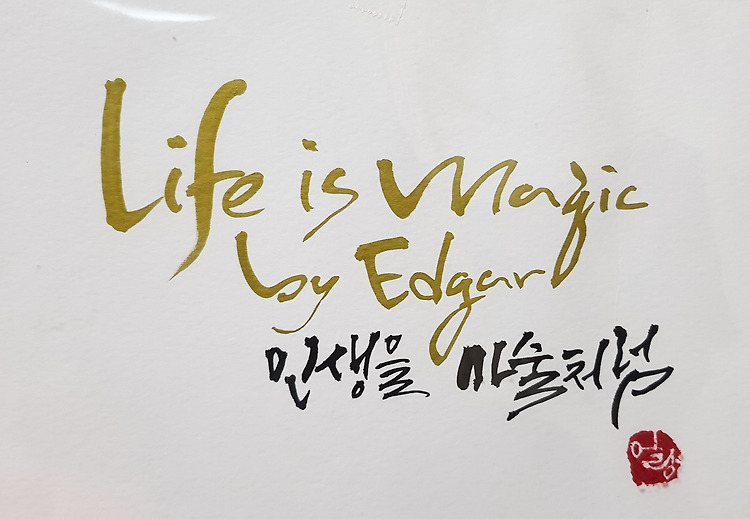 Life is Magic
by Edgar
인생을 마술처럼